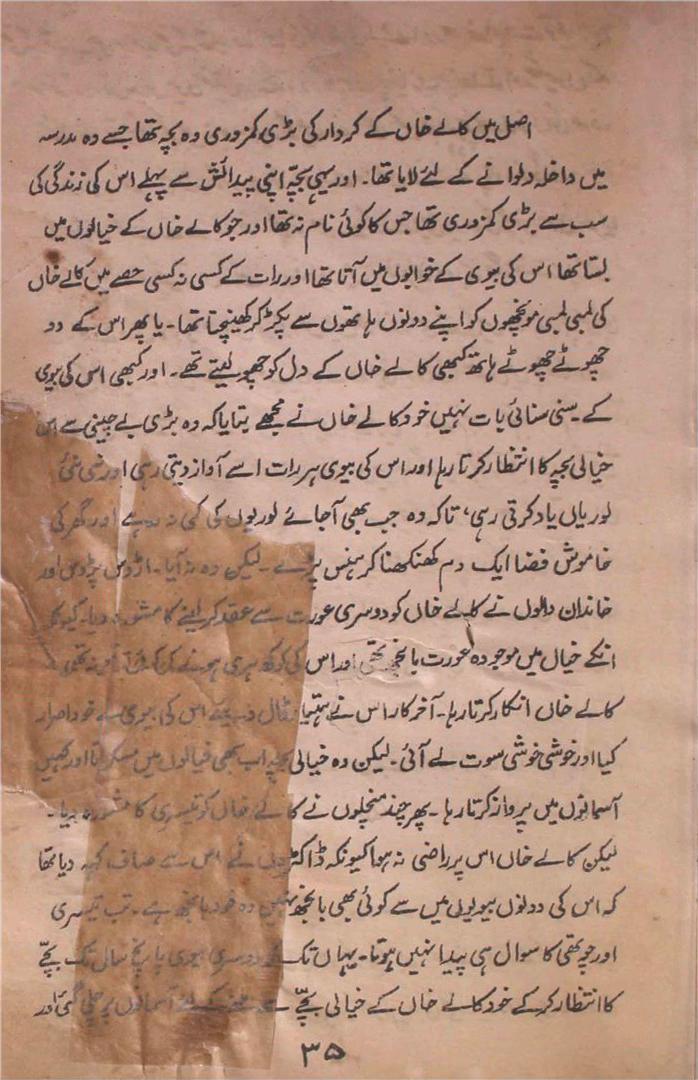 اصل میں کالے خاں کے کردار کی بڑی کمزوری وہ بچہ تھا جسے وہ مدرسہ
میں داخلہ دلوانے کے لئے لایا تھا۔ اور یہی بچّہ اپنی پیدائش سے پہلے اس کی زندگی کی
سب سے بڑی کمزوری تھا جس کا کوئی نام نہ تھا اور جو کالے خاں کے خیالوں میں
بستا تھا اس کی بیوی کے خوابوں میں آتا تھا اور رات کے کسی نہ کسی حصے میں کالے خاں
کی لمبی لمبی مونچھوں کو اپنے دونوں ہاتھوں سے پکڑ کر کھینچتا تھا۔ یا پھر اس کے دو
چھوٹے چھوٹے ہاتھ کبھی کالے خاں کے دل کو چھو لیتے تھے۔ اور کبھی اس کی بیوی
کے یسنی سنائی بات نہیں خود کالے خاں نے مجھے بتایا کہ وہ بڑی بے چینی سے اس
خیالی بچہ کا انتظار کرتا رہا اور اس کی بیوی ہر رات اسے آواز دیتی رہی اور نئی نئی
لوریاں یاد کرتی رہی، تاکہ وہ جب بھی آجائے لوریوں کی کمی نہ رہے اور گھر کی
خاموش فضا ایک دم کھنکھنا کر ہنس پڑے۔ لیکن وہ نہ آیا۔ اڑوس پڑوس اور
خاندان والوں نے کالے خاں کو دوسری عورت سے عقد کر لینے کا مشورہ دیا۔ کیونکہ
انکے خیال میں موجودہ عورت بانجھ تھی اور اس کی کوکھ ہری ہونے کی
کالے خاں انکار کرتا رہا۔ آخر کار اس نے ہتھیار ڈال دیئے اس کی بیوی نے خود اصرار
کیا اور خوشی خوشی سوت لے آئی۔ لیکن وہ خیالی بچّہ اب بھی خیالوں میں مسکراتا اور کہیں
آسمانوں میں پرواز کرتا رہا۔ پھر چند منچلوں نے کالے خاں کو تیسری کا مشورہ دیا۔
لیکن کالے خاں اس پر راضی نہ ہوا کیونکہ ڈاکٹروں نے اس سے صاف کہہ دیا تھا
کہ اس کی دونوں بیویوں میں سے کوئی بھی بانجھ نہیں وہ خود بانجھ ہے۔ تب تیسری
اور چوتھی کا سوال ہی پیدا نہیں ہوتا۔ یہاں تک کہ دوسری بیوی پانچ سالی تک بچّے
کا انتظار کر کے خود کالے خاں کے خیالی بچّے سے ملنے کے لئے آسمانوں پر چلی گئی اور
۳۵